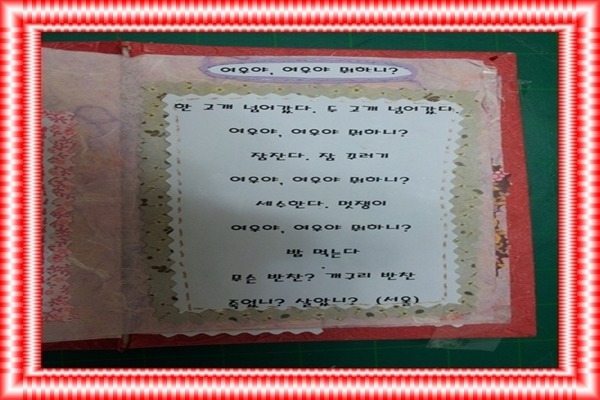 여우야, 여우야 뭐하니?
한 고개 넘어갔다. 두 고개 넘어갔다.
여우야, 여우야 뭐하니?
잠잔다. 잠 꾸러기
여우야, 여우야 뭐하니?
세수한다. 멋쟁이
여우야, 여우야 뭐하니?
밥 먹는다
무슨 반찬? 개구리 반찬
죽었니? 살았니? (서울)